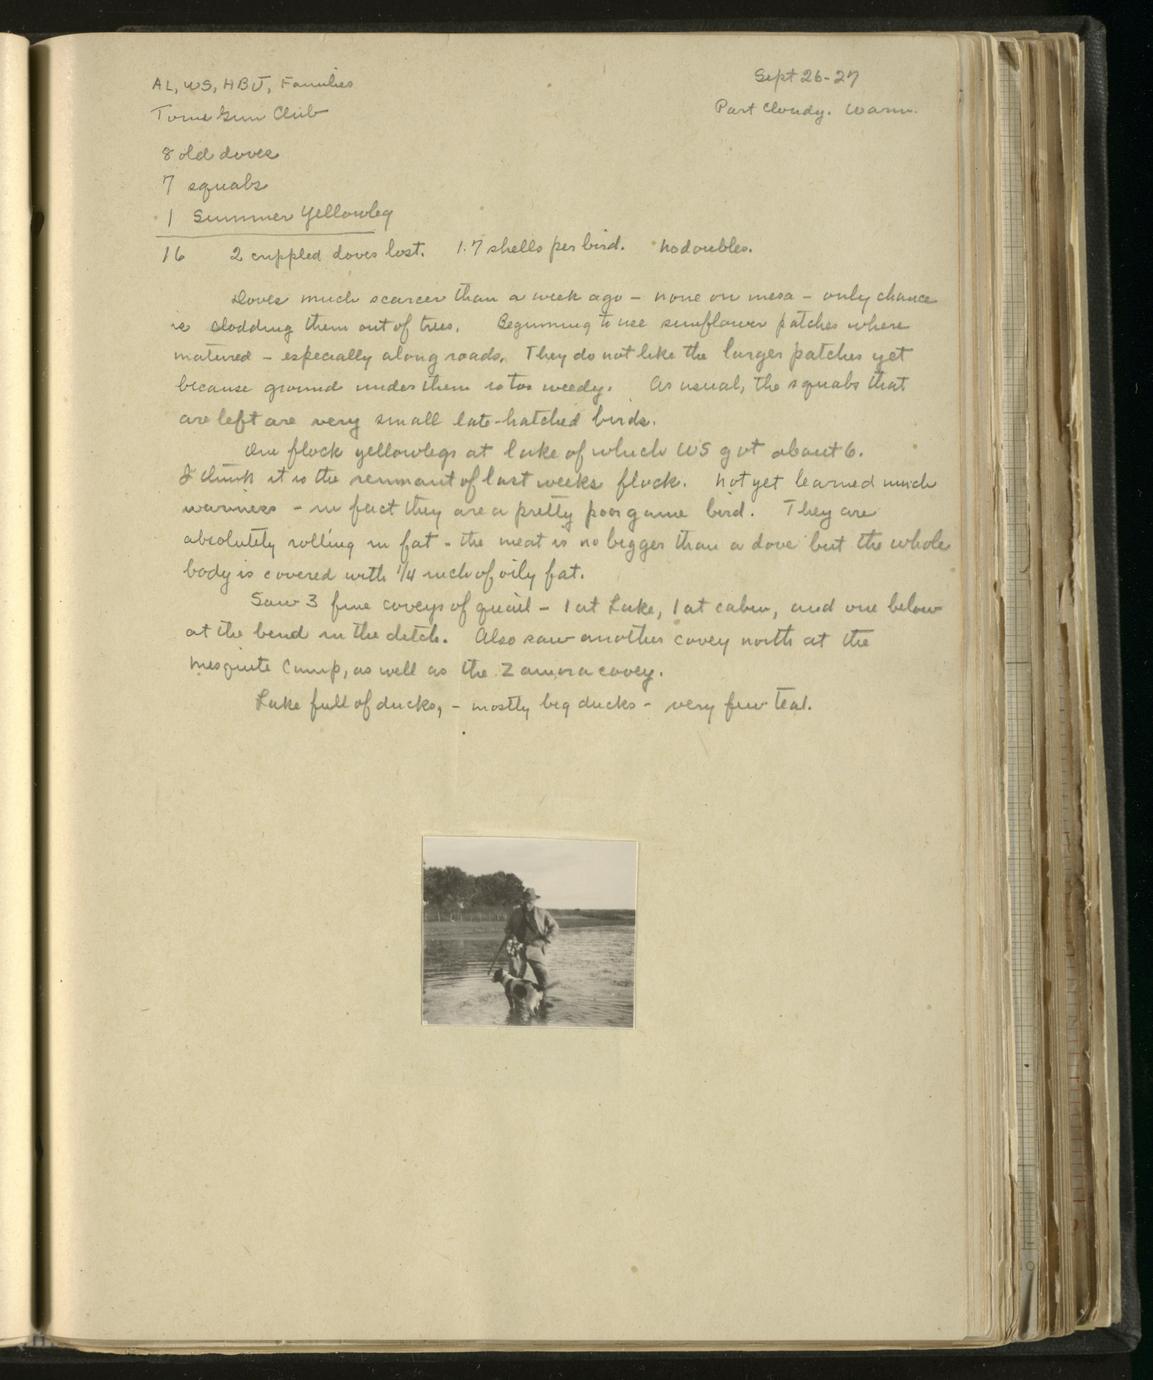 AL, WS, HBJ, Families
Sept 26-27
Tome Gun Club
Part Cloudy. Warm.
8 old doves
7 squabs
1 Summer Yellowleg
16 2 crippled doves lost. 1.7 shells per bird. No doubles.
Doves much scarcer than a week ago - none on mesa - only chance
is clodding them out of trees. Beginning to use sunflower patches where
matured - especially along roads. They do not like the larger patches yet
because ground under them is too weedy. As usual, the squabs that
are left are very small late-hatched birds.
One flock yellowlegs at lake of which WS got about 6.
I think it is the remnant of last weeks flock. Not yet learned much
wariness - in fact they are a pretty poor game bird. They are
absolutely rolling in fat - the meat is no bigger than a dove but the whole
body is covered with 1/4 inch of oily fat.
Saw 3 fine coveys of quail - 1 at Lake, 1 at cabin, and one below
at the bend in the ditch. Also saw another covey north at the
Mesquite Camp, as well as the Zamora covey.
Lake full of ducks, - mostly big ducks - very few teal.